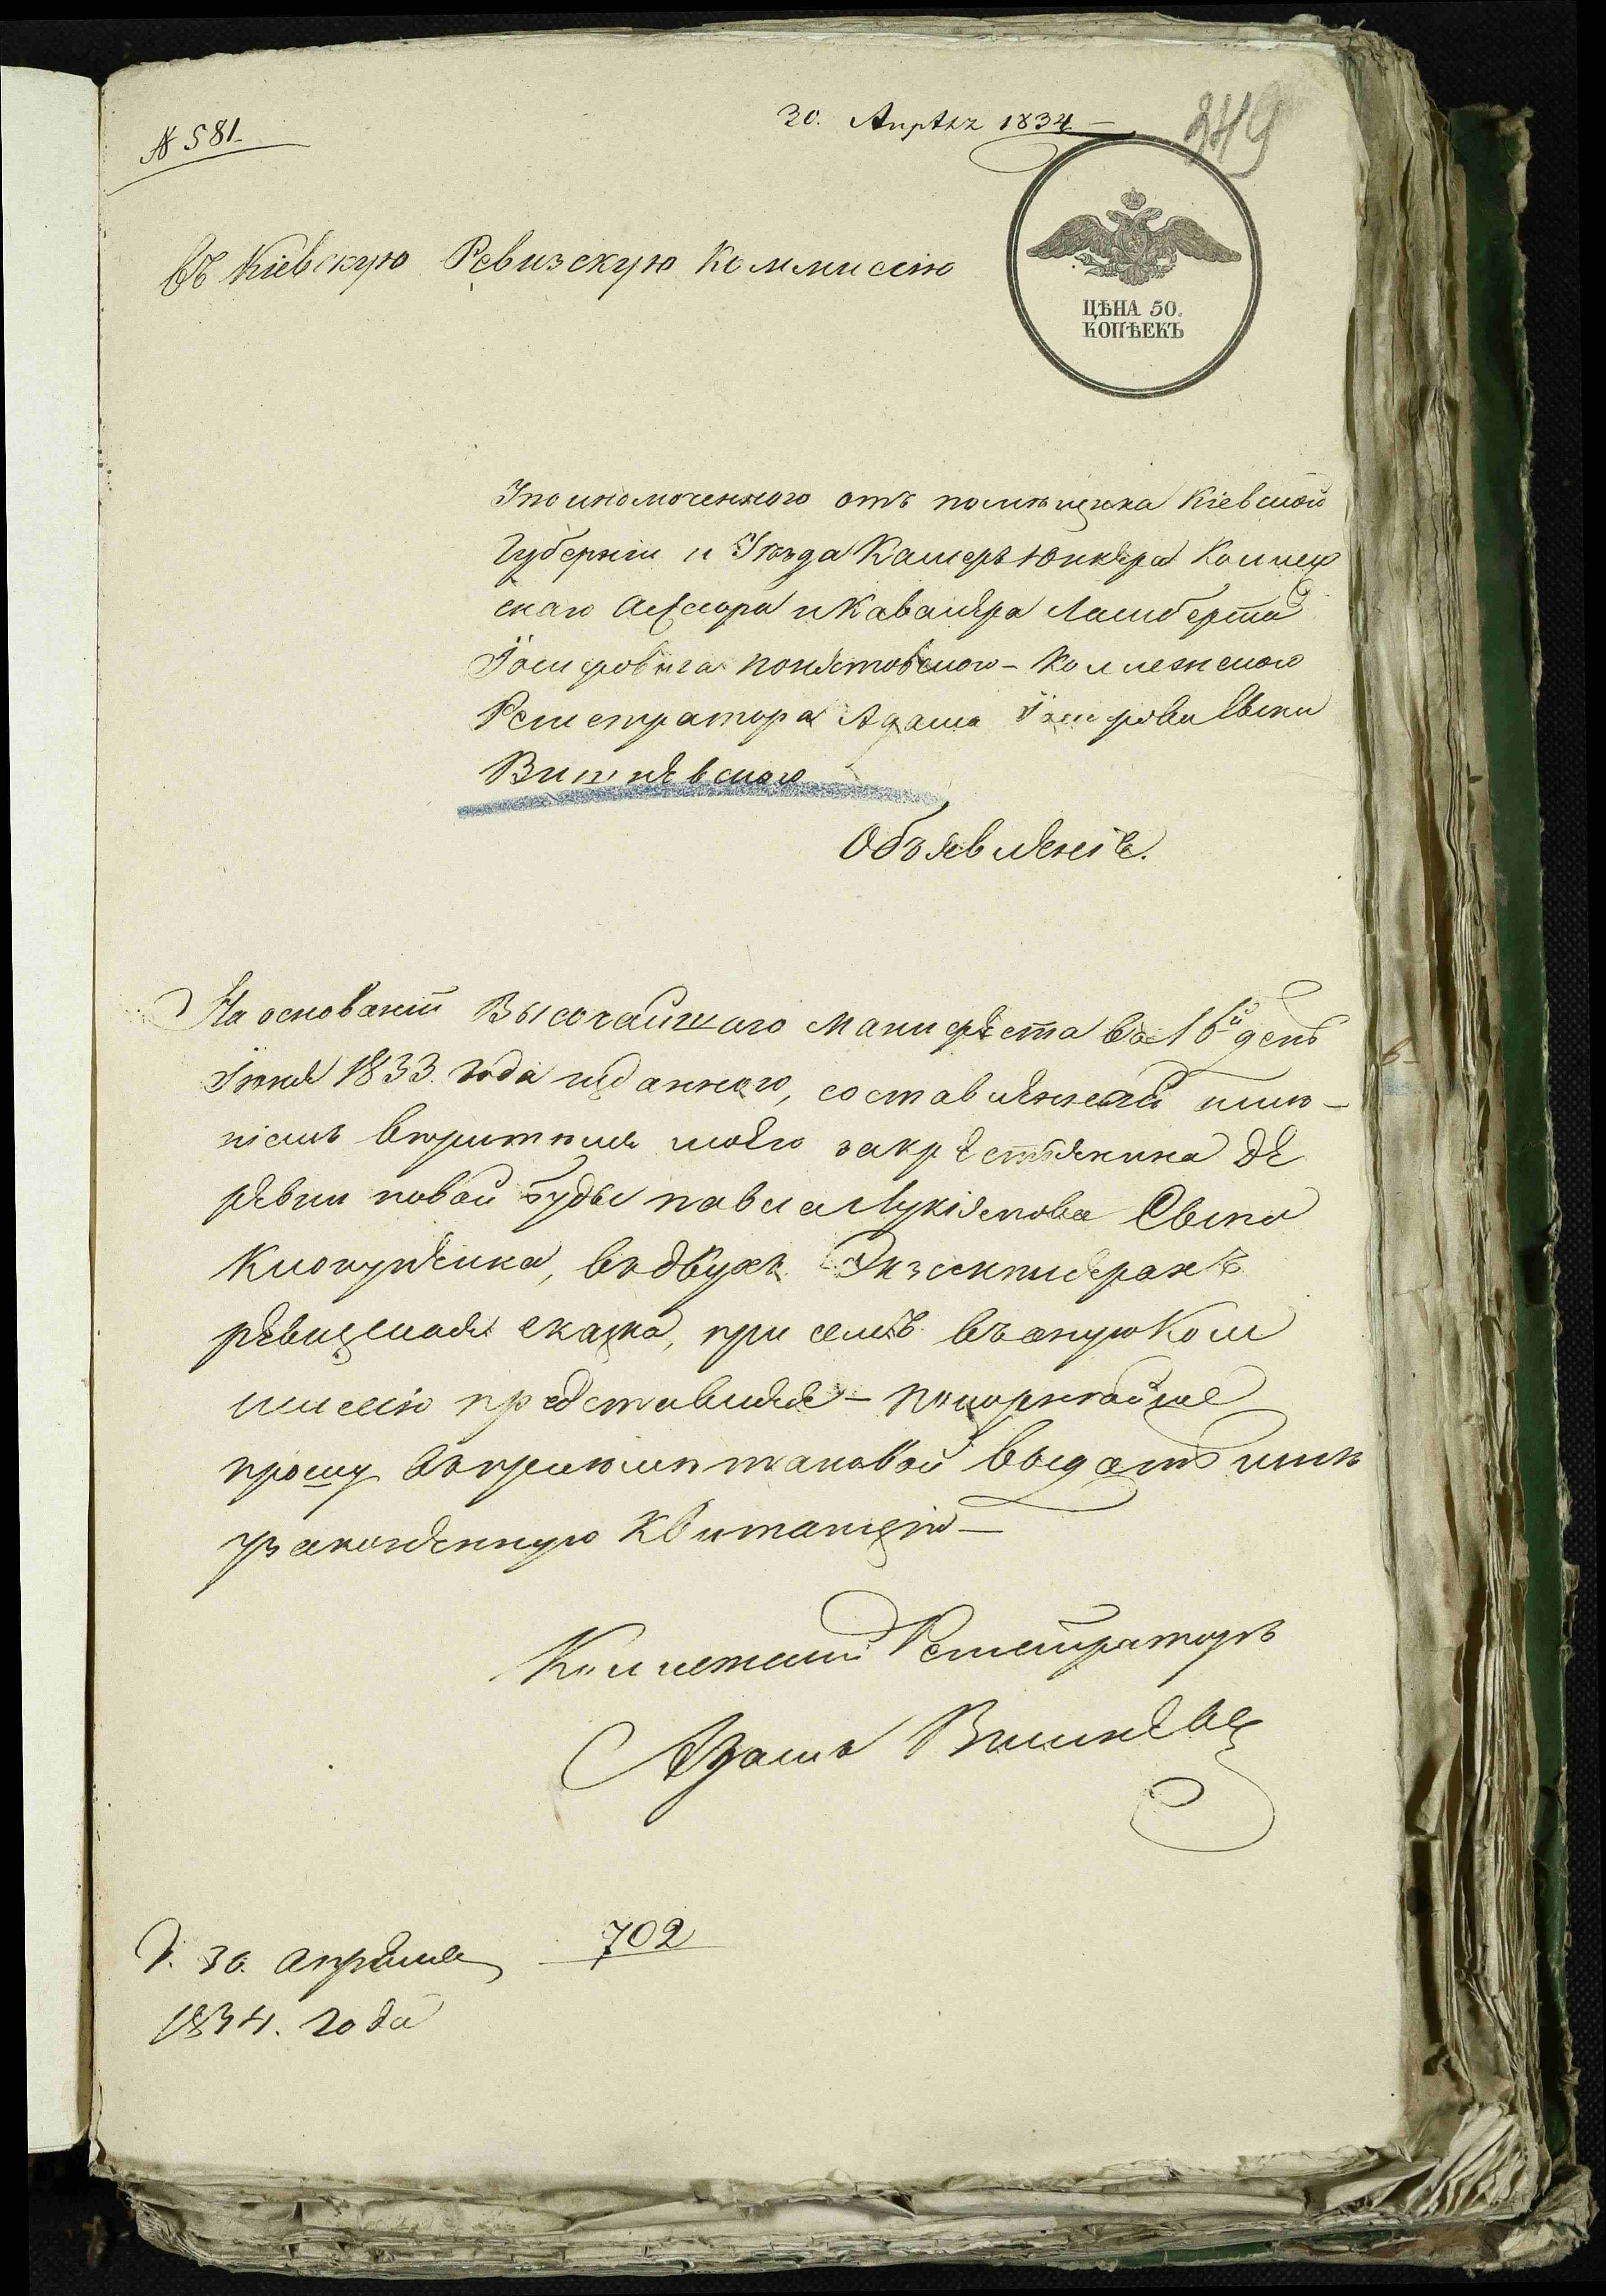 № 581.
30. Апрѣля 1834
349
Въ Кіевскую Ревизскую Коммисію
ЦѢНА 50.
КОПѢЕКЪ
Уполномоченного отъ помѣщика Кіевской
Губерніи и Уѣзда Камеръ Юнкера Коллеж
скаго Ассесора и Кавалера Ламберта
Іосифовича Понятовского – Коллежского
Регистратора Адама Іосифова Сына
Вишневского
Объявленіе.
На основаніи Высочайшаго Манифеста въ 16й день
Іюня 1833 года изданного, составленная
мною закрестьянина де
ревни новой Буды павла Лукіянова Сына
въ двухъ Экземплярахъ
ревизская сказка, при семъ въ оную Ком
мисію представляя – покорнѣйше
прошу таковой выдать мнѣ
узаконенную Квитанцію –
Коллежскій Регистраторъ
Адамъ Вишневс
30. Апреля
1834. года
702